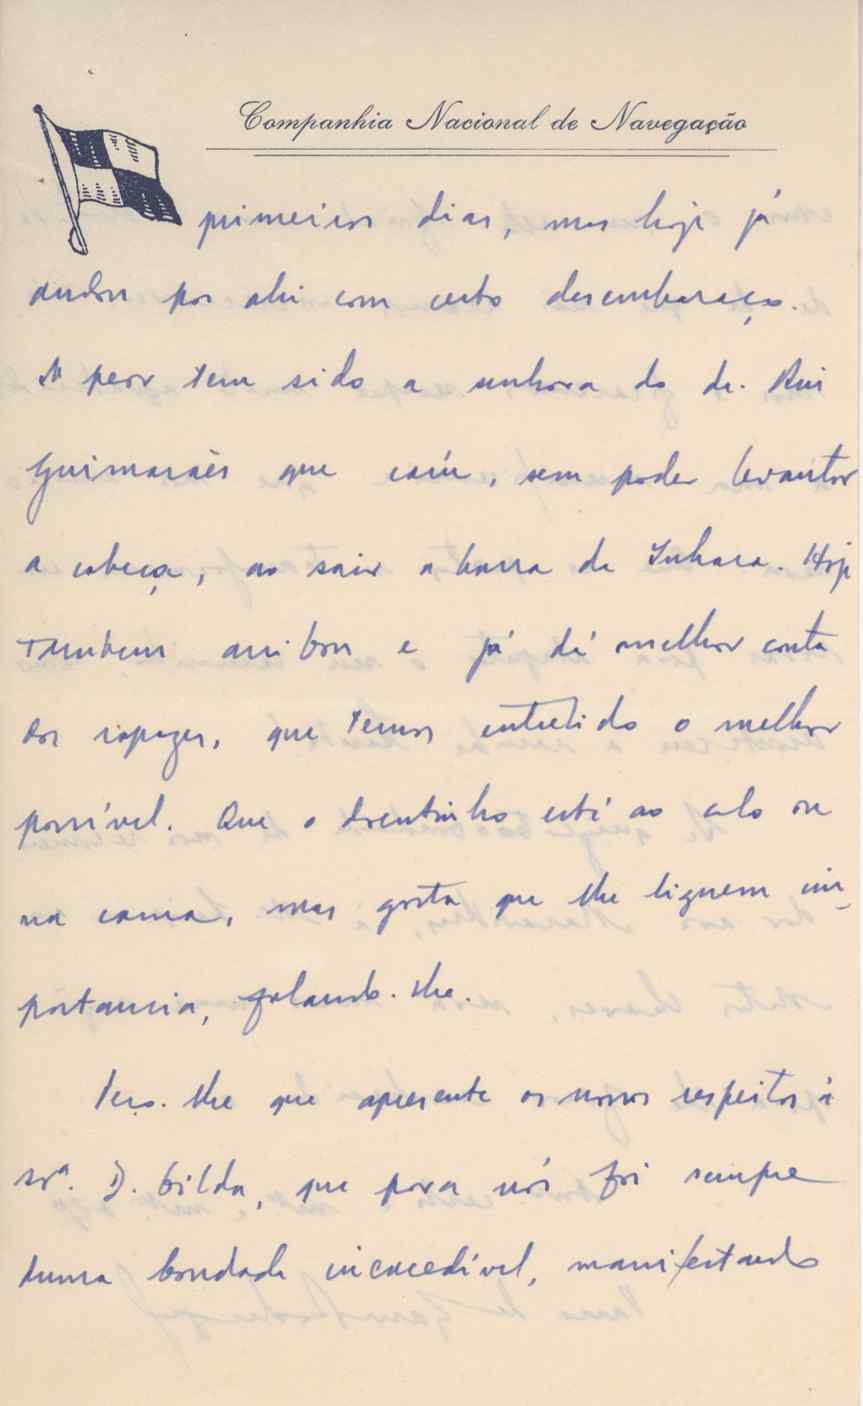 Companhia Nacional de Navegação
primeiros dias, mas hoje já
andou por ahi com certo desembaraço.
A peor tem sido a senhora do dr. Rui
Guimarães que caíu, sem poder levantar
a cabeça, ao sair a barra de Inhaca. Hoje
tambem arribou e já dá melhor conta
dos rapazes, que temos entretido o melhor
possível. Que o doentinho está ao colo ou
na cama, mas gosta que lhe liguem im-
portancia, falando-lhe.
Peço-lhe que apresente os nossos respeitos à
srª. D. Gilda, que para nós foi sempre
duma bondade inexcedível, manifestando